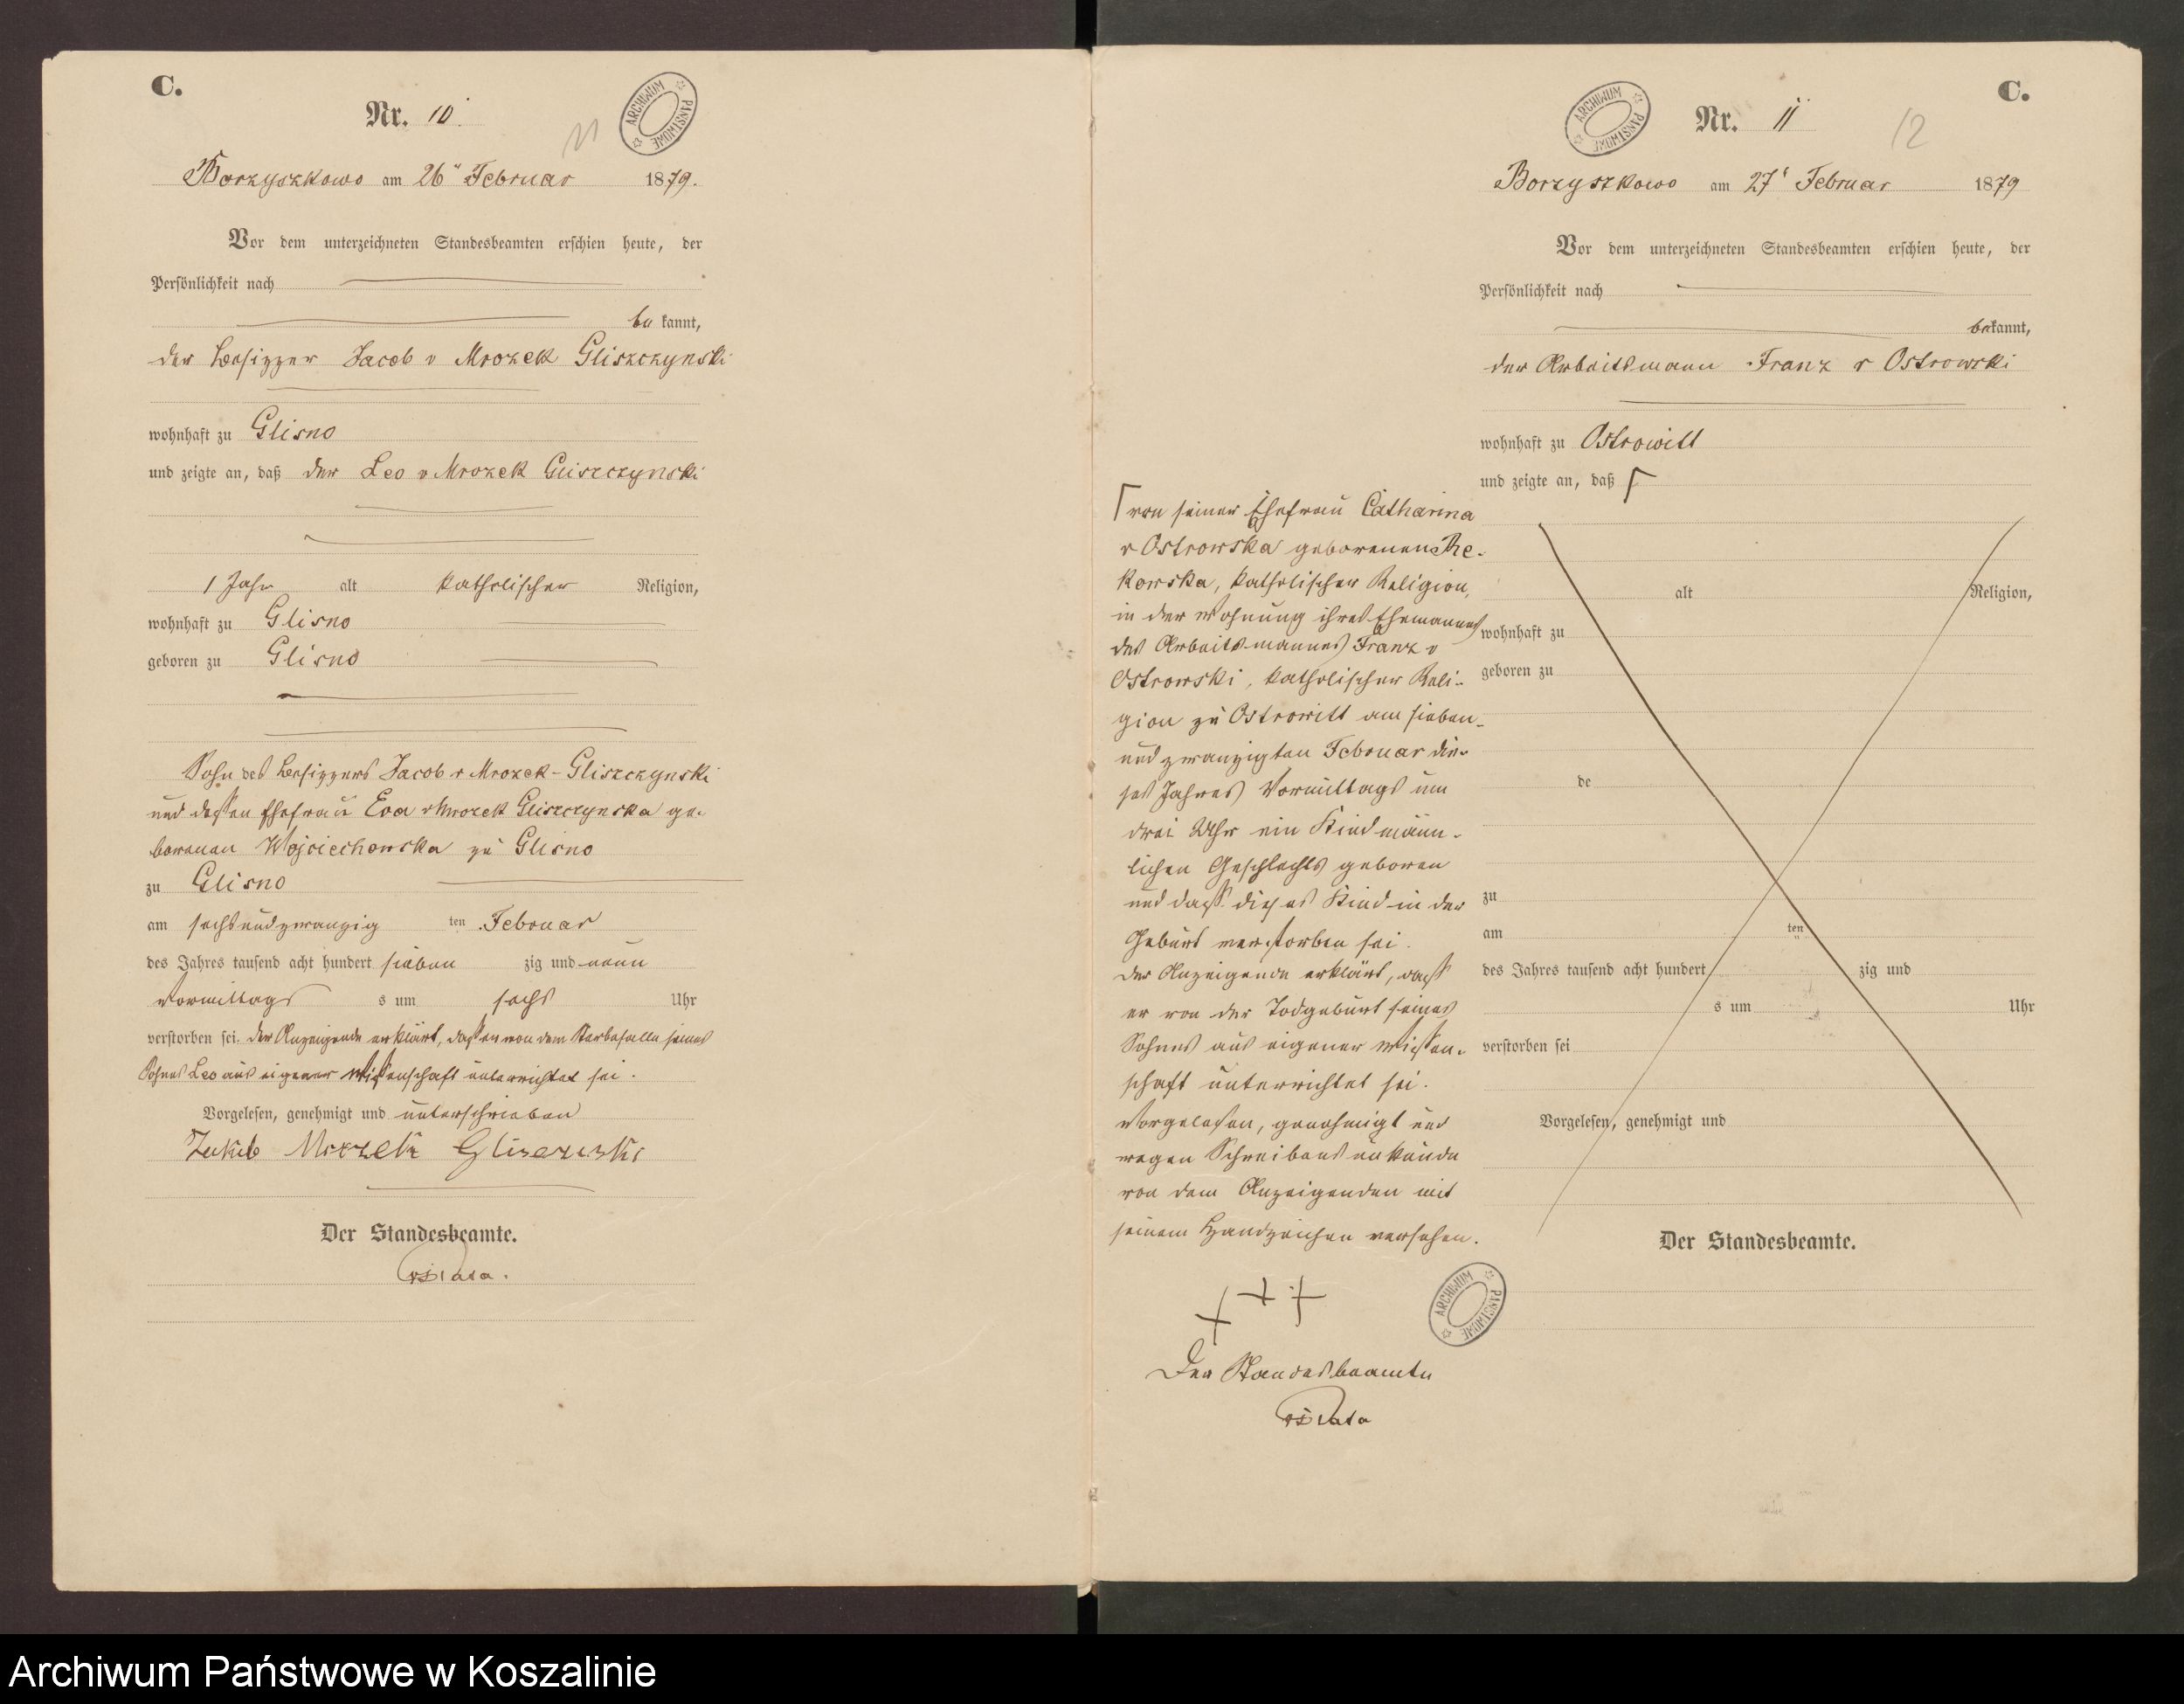 C.
Nr. 10.
11
ARCHIWUM PAŃSTWOWE
Borzyszkowo am 26" Februar 1879.
Vor dem unterzeichneten Standesbeamten erschien heute, der
Persönlichkeit nach
be kannt,
der Besitzer Jacob v Mrozek Gliszczynski
wohnhaft zu Glisno
und zeigte an, daß der Leo v Mrozek Gliszczynski
1 Jahr alt katholischer Religion,
wohnhaft zu Glisno
geboren zu Glisno
Sohn des Besitzers Jacob v Mrozek-Gliszczynski
und dessen Ehefrau Eva v Mrozek Gliszczynska ge-
borenen Wojciechowska zu Glisno
zu Glisno
am sechsundzwanzig ten Februar
des Jahres tausend acht hundert sieben zig und neun
Vormittags s um sechs Uhr
verstorben sei. Der Anzeigende erklärt, dass er von dem Sterbefalle seines
Sohnes Leo aus eigener Wissenschaft unterrichtet sei.
Vorgelesen, genehmigt und unterschrieben
Jakub Mrozek
Der Standesbeamte.
C.
ARCHIWUM PAŃSTWOWE
Nr. 11
12
Borzyszkowo am 27" Februar 1879
Vor dem unterzeichneten Standesbeamten erschien heute, der
Persönlichkeit nach
bekannt,
der Arbeitsmann Franz v Ostrowski
wohnhaft zu Ostrowitt
und zeigte an, daß
von seiner Ehefrau Catharina
v Ostrowska geborenen Re-
kowska, katholischer Religion,
in der Wohnung ihres Ehemannes
des Arbeitsmannes Franz v
Ostrowski, katholischer Reli-
gion zu Ostrowitt am sieben-
undzwanzigten Februar die-
ses Jahres Vormittags um
drei Uhr ein Kind männ-
lichen Geschlechts geboren
und dass dieses Kind in der
Geburt verstorben sei.
Der Anzeigende erklärt, dass
er von der Todgeburt seines
Sohnes aus eigener Wissen-
schaft unterrichtet sei.
Vorgelesen, genehmigt und
wegen Schreibensunkunde
von dem Anzeigenden mit
seinem Handzeichen versehen.
+++
Der Standesbeamte
ARCHIWUM PAŃSTWOWE
alt Religion,
wohnhaft zu
geboren zu
de
zu
am ten
des Jahres tausend acht hundert zig und
s um Uhr
verstorben sei
Vorgelesen, genehmigt und
Der Standesbeamte.
Archiwum Państwowe w Koszalinie